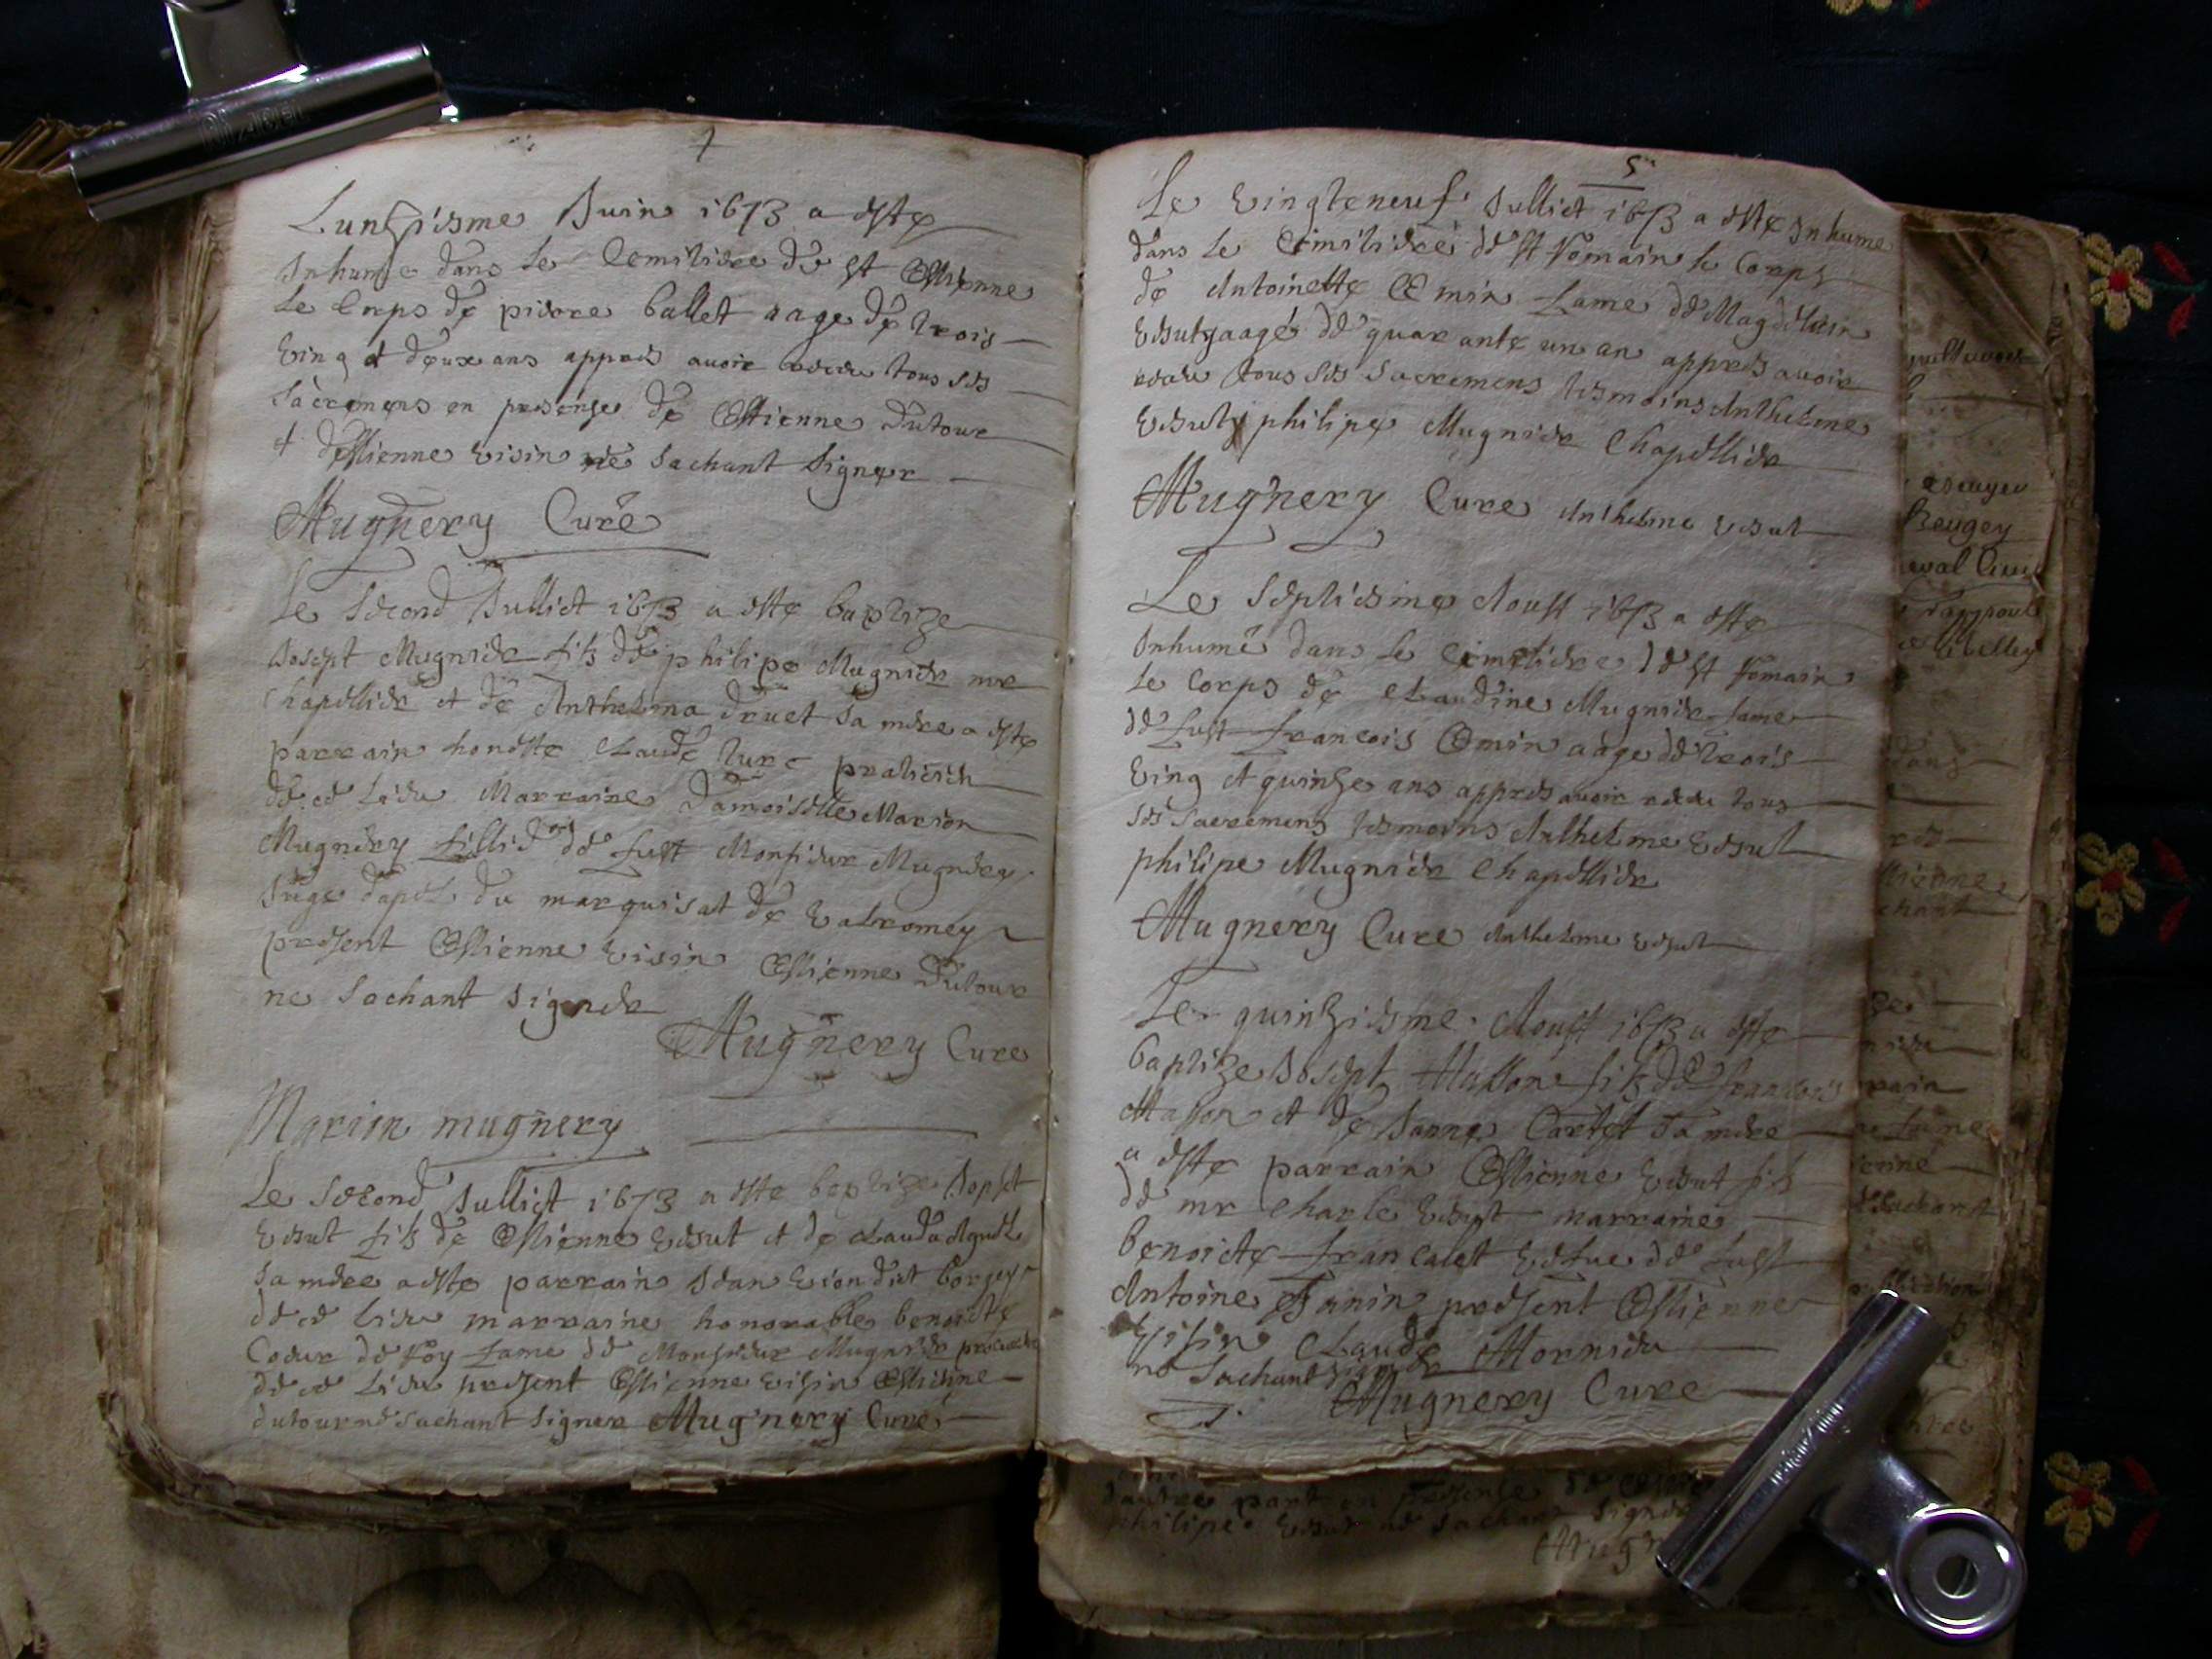 4
Lunziesme Juin 1673 a este
Inhume dans le Cemitiere de st Estienne
le Corps de pierre ballet aage de trois
ving et deux ans appres avoir receu tous ses
sacremens en presense de Estienne Dutour
et d'Estienne visin ne sachant signer
Mugnery Curé
Le second Julliet 1673 a este baptize
Josept Mugnier fils de philipe Mugnier mre
Chapellier et de Anthelma druet sa mere a este
parrain honeste Claude ture praticien
de ce lieu Marraine Damoiselle Marion
Mugniery fillie de fust Monsieur Mugniery
Juge d'apel du marquisat de valromey
present Estienne visin Estienne Dutour
ne sachant signer
Mugnery Cure
Marion mugnery
Le second Julliet 1673 a este baptize Josept
vesut fils de Estienne vesut et de Clauda
sa mere a este parrain Jean dict borgey
de ce lieu marraine honorable benoicte
Coeur de Roy fame de Monsieur Mugnier
de ce lieu present Estienne visin Estienne
dutour ne sachant signer Mugnery Curé
5
Le vingteneuf Julliet 1673 a este Inhume
dans le Cimitiere de st Romain le Corps
de Antoinette Emin fame de
vesut aagé de quarante un an appres avoir
receu tous ses sacremens tesmoins Anthelme
vesut philipe Mugnier Chapellier
Mugnery Cure Anthelme vesut
Le septiesme Aoust 1673 a este
Inhumé dans le Cimitiere de st Romain
le Corps de Claudine Mugnier fame
de fust francois Emin aage de trois
ving et quinze ans appres avoir receu tous
ses sacremens tesmoins Anthelme vesut
philipe Mugnier Chapellier
Mugnery Cure Anthelme vesut
Le quinziesme Aoust 1673 a este
baptize Josept Masson fils de francois
Masson et de Janne Cartet sa mere
a este parrain Estienne vesut fils
de mr Charle vesut marraine
benoicte francalet vefue de fust
Antoine Janin present Estienne
visin Claude Mornieu
ne sachant signer
Mugnery Cure